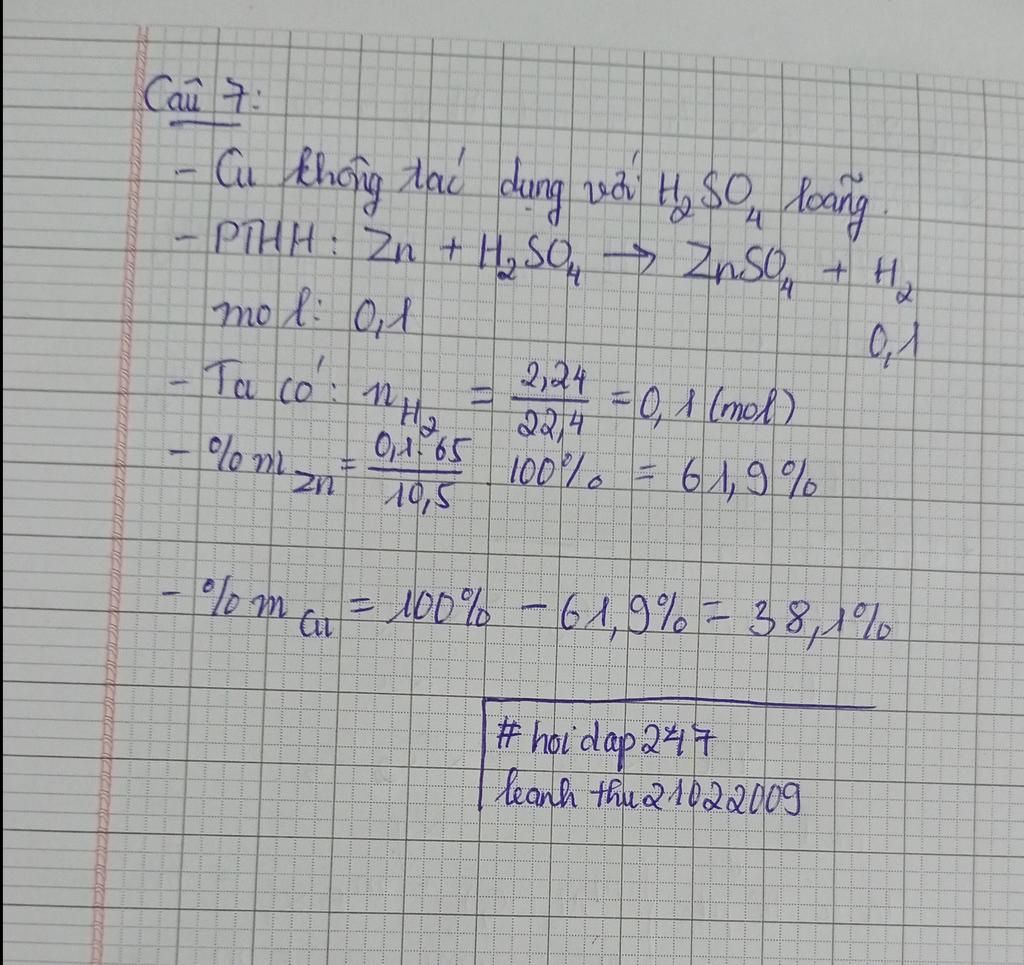 Câu 7:
- Cu không tác dụng với H₂SO₄ loãng.
- PTHH: Zn + H₂SO₄ → ZnSO₄ + H₂
mol: 0,1 0,1
- Ta có: n_H₂ = 2,24/22,4 = 0,1 (mol)
- %m_Zn = 0,1.65/10,5 . 100% = 61,9%
- %m_Cu = 100% - 61,9% = 38,1%
# hoidap247
leanhthu21022009